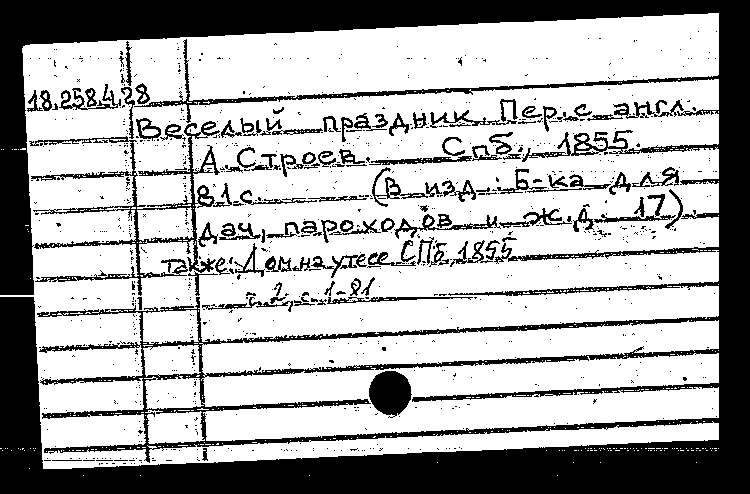 18.258.4.28
Веселый праздник. Пер. с англ.
А. Строев. Спб., 1855.
81 с. (В изд.: Б-ка для
дач, пароходов и ж.д. 17).
также: Дом на утесе СПб, 1855
т. 2, с. 1-81